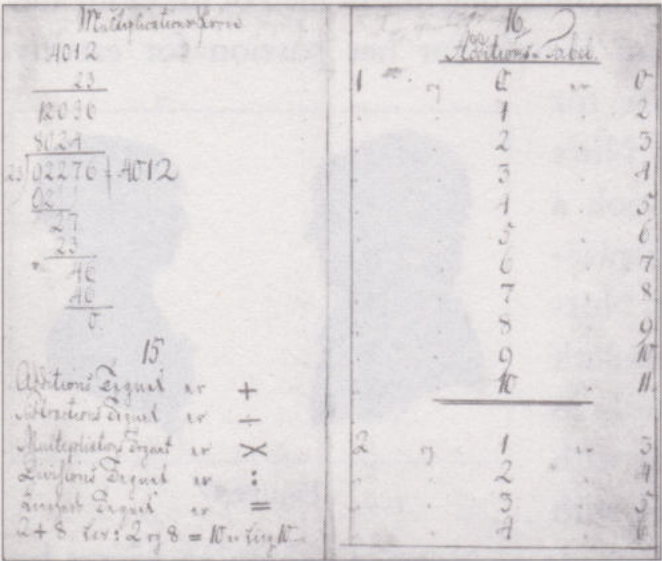 Multiplications Prove
4012
23
12036
8024
23 ) 92276 ( 4012
92
27
23
46
46
0.
15
Additions Tegnet er +
Subtractions Tegnet er ÷
Multiplications Tegnet er ×
Divisions Tegnet er :
Tegnet er =
2 + 8, : 2 og 8 = 10 er 10
16
Additions-Tabel.
1 og 0 er 0
. . 1 . 2
. . 2 . 3
. . 3 . 4
. . 4 . 5
. . 5 . 6
. . 6 . 7
. . 7 . 8
. . 8 . 9
. . 9 . 10
. . 10 . 11
2 og 1 er 3
. . 2 . 4
. . 3 . 5
. . 4 . 6